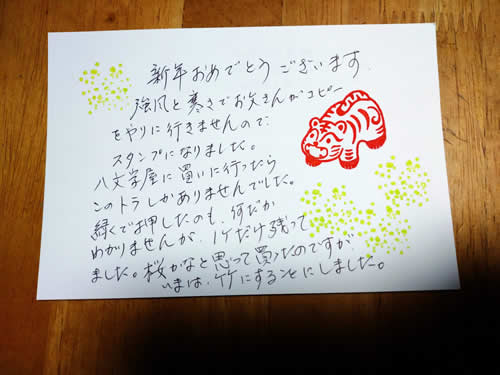 新年おめでとうございます.
強風と寒さでお父さんがコピー
をやりに行きませんので
スタンプになりました。
八文字屋に買いに行ったら
このトラしかありませんでした。
緑くで押したのも、何だか
わかりませんが、1ケだけ残って
ました。桜かなと思って買ったのですが、
いまは、竹にすることにしました。